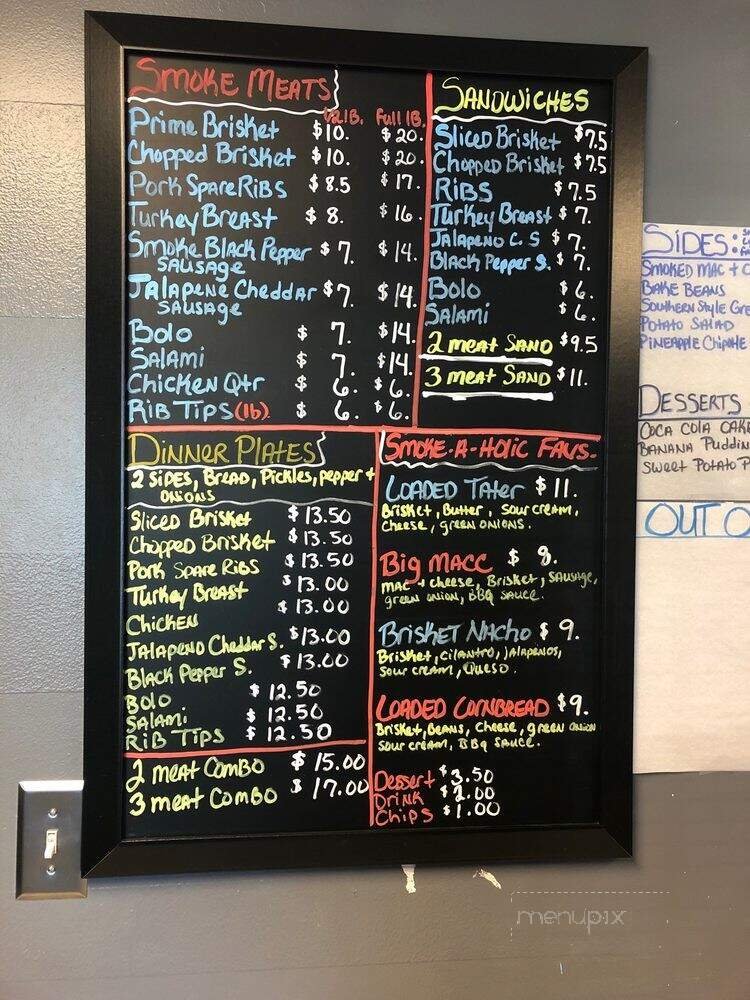 SMOKE MEATS
1/2 lB. Full lB.
Prime Brisket $10. $20.
Chopped Brisket $10. $20.
Pork Spare Ribs $8.5 $17.
Turkey Breast $8. $16.
Smoke Black Pepper $7. $14.
SAUSAGE
Jalapene Cheddar $7. $14.
SAUSAGE
Bolo $7. $14.
Salami $7. $14.
Chicken Qtr $6. $6.
Rib Tips (lb) $6. $6.
SANDWICHES
Sliced Brisket $7.5
Chopped Brisket $7.5
RIBS $7.5
Turkey Breast $7.
Jalapeno C. S $7.
Black Pepper S. $7.
Bolo $6.
Salami $6.
2 meat SAND $9.5
3 meat SAND $11.
DINNER PLATES
2 SIDES, BREAD, Pickles, pepper +
ONIONS
Sliced Brisket $13.50
Chopped Brisket $13.50
Pork Spare Ribs $13.50
Turkey Breast $13.00
Chicken $13.00
Jalapeno Cheddar S. $13.00
Black Pepper S. $13.00
Bolo $12.50
Salami $12.50
Rib Tips $12.50
2 meat Combo $15.00
3 meat Combo $17.00
SMOKE-A-HOLIC FAVS.
LOADED Tater $11.
Brisket, Butter, sour cream,
Cheese, green onions.
Big MACC $8.
MAC + cheese, Brisket, SAUSAGE,
green onion, BBQ SAUCE.
Brisket Nacho $9.
Brisket, Cilantro, Jalapenos,
Sour cream, Queso.
LOADED CORNBREAD $9.
Brisket, Beans, Cheese, green onion
sour cream, BBq SAUCE.
Dessert $3.50
DRINK $2.00
Chips $1.00
SIDES:
SMOKED MAC + C
BAKE BEANS
Southern Style Gre
Potato Salad
Pineapple Chipotle
DESSERTS
COCA COLA CAKE
BANANA Puddin
Sweet Potato P
OUT O
menupix